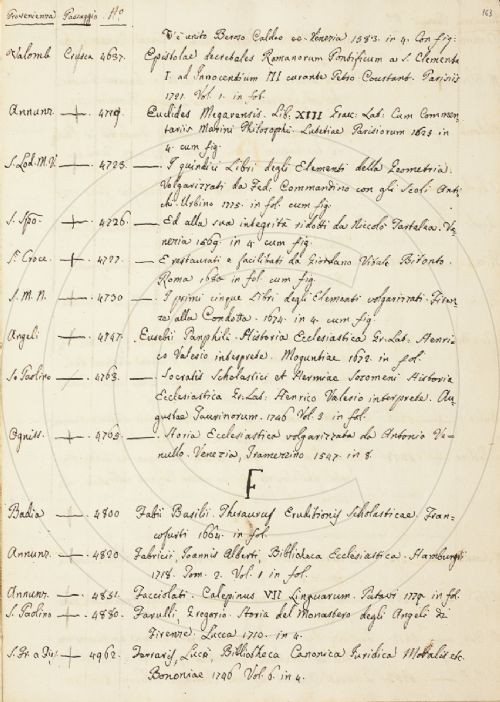 Provenienza Passaggio N.o 163
Vicento Beroso Caldeo ec. Venezia 1583. in 4. Con fig.
Valomb. Crusca 4637. Epistolae decretales Romanorum Pontificum a S. Clemente
I. ad Innocentium III curante Petro Coustant. Parisiis
1721. Vol. 1. in fol.
Annunz. 4719. Euclides Megarensis. Lib. XIII Graec. Lat. Cum Commen-
tariis Marini Philosophi. Lutetiae Parisiorum 1625 in
4. cum fig.
S. Lod. M. V. 4723. — I quindici Libri degli Elementi della Geometria.
Volgarizzati da Fed. Commandino con gli Scolj Anti-
chi. Urbino 1575. in fol. cum fig.
S. Spo. 4726. — Ed alla sua integrità ridotti da Niccolò Tartalea. Ve-
nezia 1569. in 4. cum fig.
S. Croce 4727. — E restaurati e facilitati da Giordano Vitale Bitonto.
Roma 1680. in fol. cum fig.
S. M. N. 4730 — I primi cinque Libri degli Elementi volgarizzati. Firen-
ze alla Condotta. 1674. in 4. cum fig.
Angeli 4747. Eusebii Pamphili. Historia Ecclesiastica Gr. Lat. Henri-
co Valesio interprete. Moguntiae 1672. in fol.
S. Paolino 4763. — Socratis Scholastici et Hermiae Sozomeni Historia
Ecclesiastica Gr. Lat. Henrico Valesio interprete. Au-
gustae Taurinorum. 1746 Vol. 3. in fol.
Ogniss. 4765. — Storia Ecclesiastica volgarizzata da Antonio Ve-
nullo. Venezia, Tramezzino 1547. in 8.
F
Badia 4800 Fabii Basilii. Thesaurus Eruditionis Scholasticae. Fran-
cofurti 1664. in fol.
Annunz. 4820 Fabricii, Joannis Alberti, Bibliotheca Ecclesiastica. Hamburgii
1718. Tom. 2. Vol. 1 in fol.
Annunz. 4831. Facciolati. Calepinus VII Linguarum. Patavi 1779. in fol.
S. Paolino 4880. Farulli, Gregorio. Storia del Monastero degli Angeli di
Firenze. Lucca 1710. in 4.
4962. Ferraris, Lucii, Bibliotheca Canonica Juridica Moralis etc.
Bononiae 1746 Vol. 6. in 4.